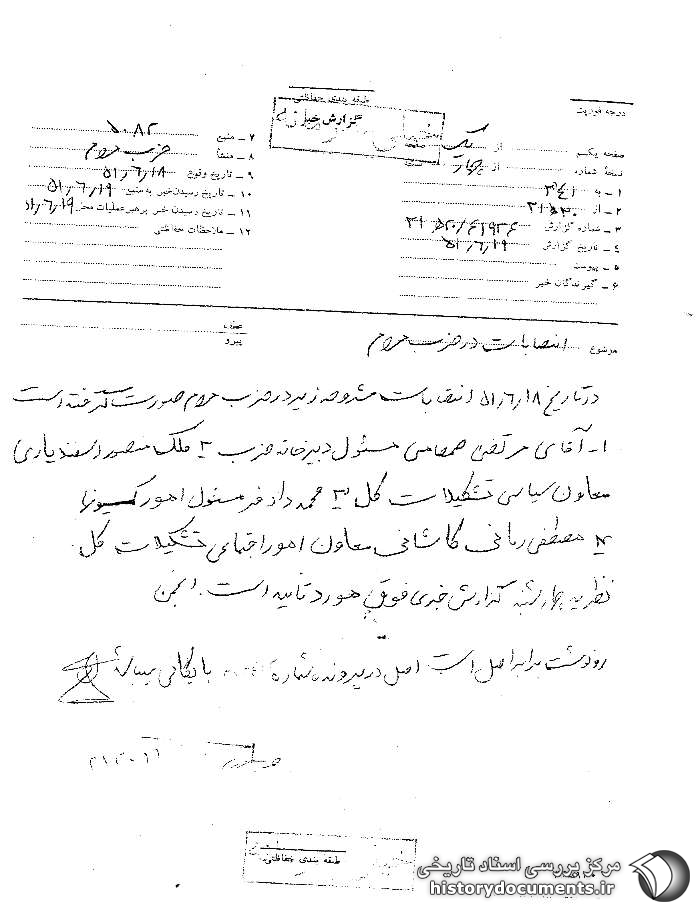 طبقه بندی حفاظتی
درجه فوریت
گزارش خبر
خیلی محرمانه
صفحه یکم از یک
نسخه شماره از چهار
۱ - به ۳۴۱
۲ - از ۲۱ ه‍ ۲۰
۳ - شماره گزارش
۴ - تاریخ گزارش ۵۱/۶/۱۹
۵ - پیوست
۶ - گیرندگان خبر
۷ - منبع ۵۰۸۲
۸ - منشأ حزب مردم
۹ - تاریخ وقوع ۵۱/۶/۱۸
۱۰ - تاریخ رسیدن خبر به منبع ۵۱/۶/۱۹
۱۱ - تاریخ رسیدن خبر برهبر عملیات محل ۵۱/۶/۱۹
۱۲ - ملاحظات حفاظتی
موضوع انتصابات در حزب مردم
عطف
پیرو
در تاریخ ۵۱/۶/۱۸ انتصابات مشروحه زیر در حزب مردم صورت گرفته است
۱- آقای مرتضی صمصامی مسئول دبیرخانه حزب ۲- ملک منصور اسفندیاری
معاون سیاسی تشکیلات کل ۳- محمد دادفر مسئول امور کمیسیونها
۴- مصطفی ریاضی کاشانی معاون امور اجتماعی تشکیلات کل
نظریه چهارشنبه گزارش خبری فوق مورد تائید است. انجمن
رونوشت برابر اصل است اصل در پرونده شماره بایگانی میباشد
طبقه بندی حفاظتی
مرکز بررسی اسناد تاریخی
historydocuments.ir